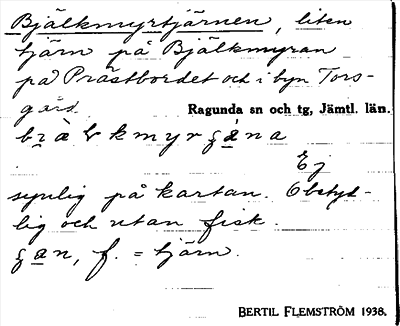 Bjälkmyrtjärnen, liten
tjärn på Bjälkmyran
på Prästbordet och i byn Tors-
gård.
Ragunda sn och tg, Jämtl. län.
Ej
synlig på kartan. Obetyd-
lig och utan fisk.
f. = tjärn.
BERTIL FLEMSTRÖM 1938.